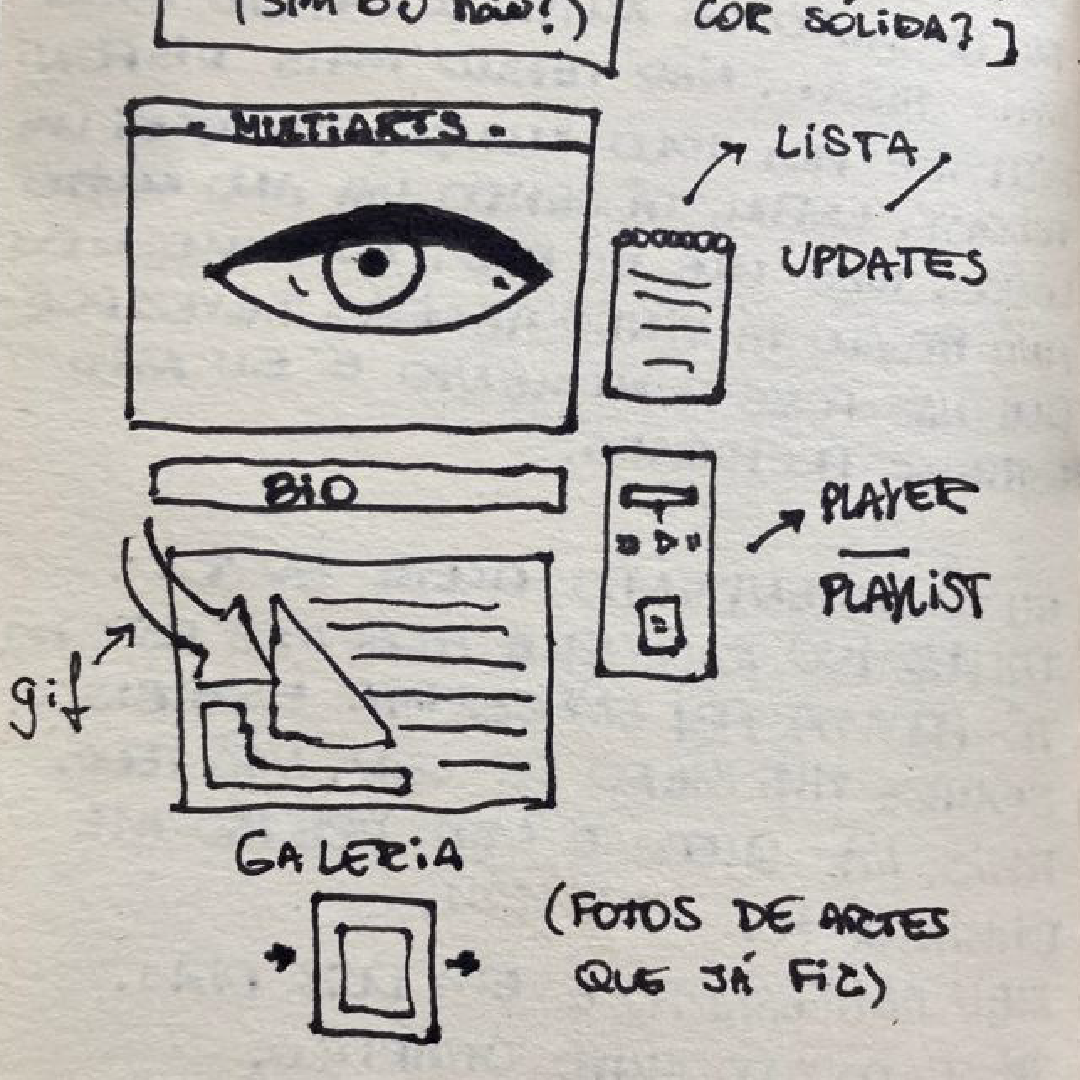 (SIM OU NÃO?)
COR SÓLIDA?]
- MULTIARTS -
LISTA /
UPDATES
BIO
PLAYER
PLAYLIST
gif
GALERIA
(FOTOS DE ARTES
QUE JÁ FIZ)